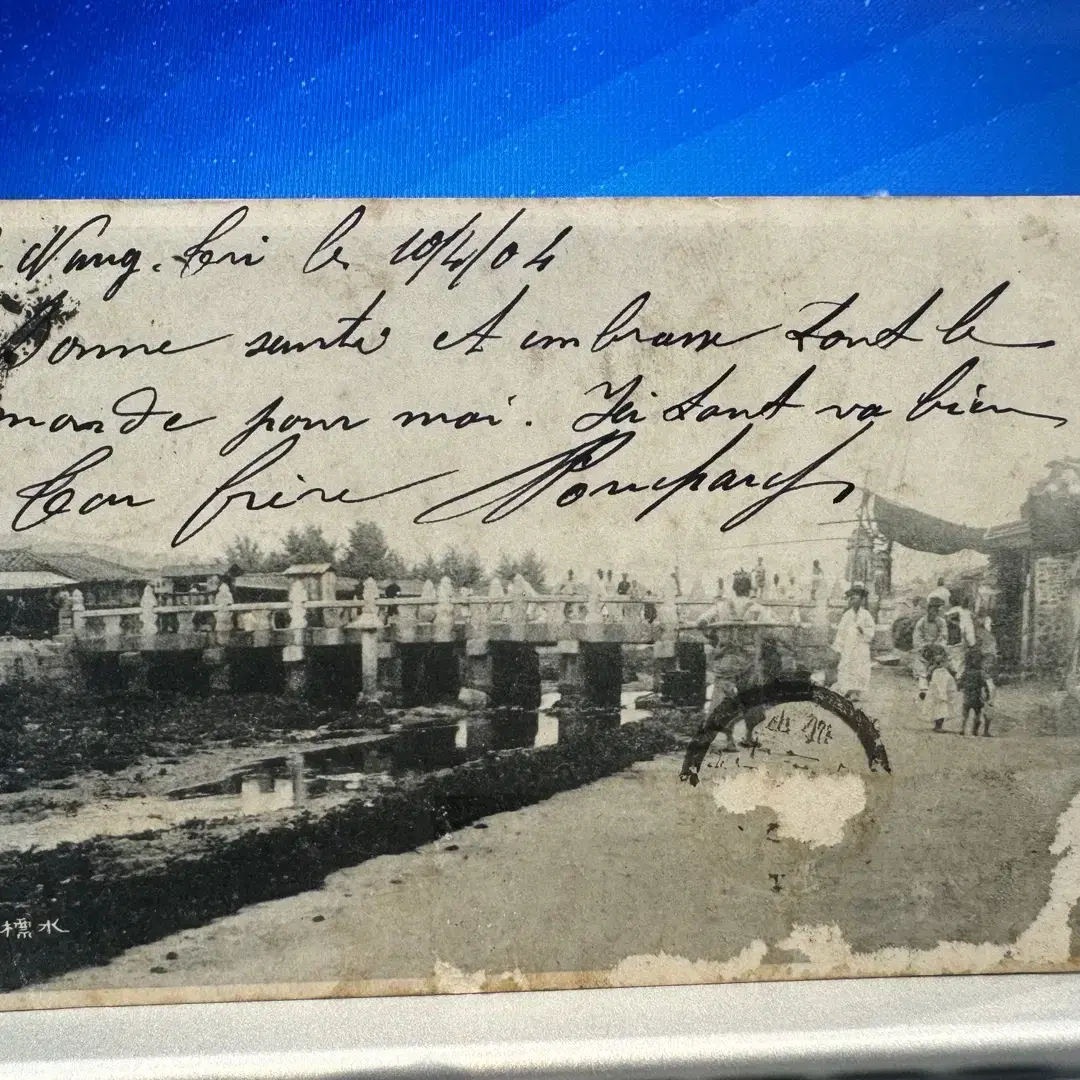 Wang. Cri le 10/4/04
Bonne santé et embrasse tout le
monde pour moi. Ici tout va bien
Ton frère
標水